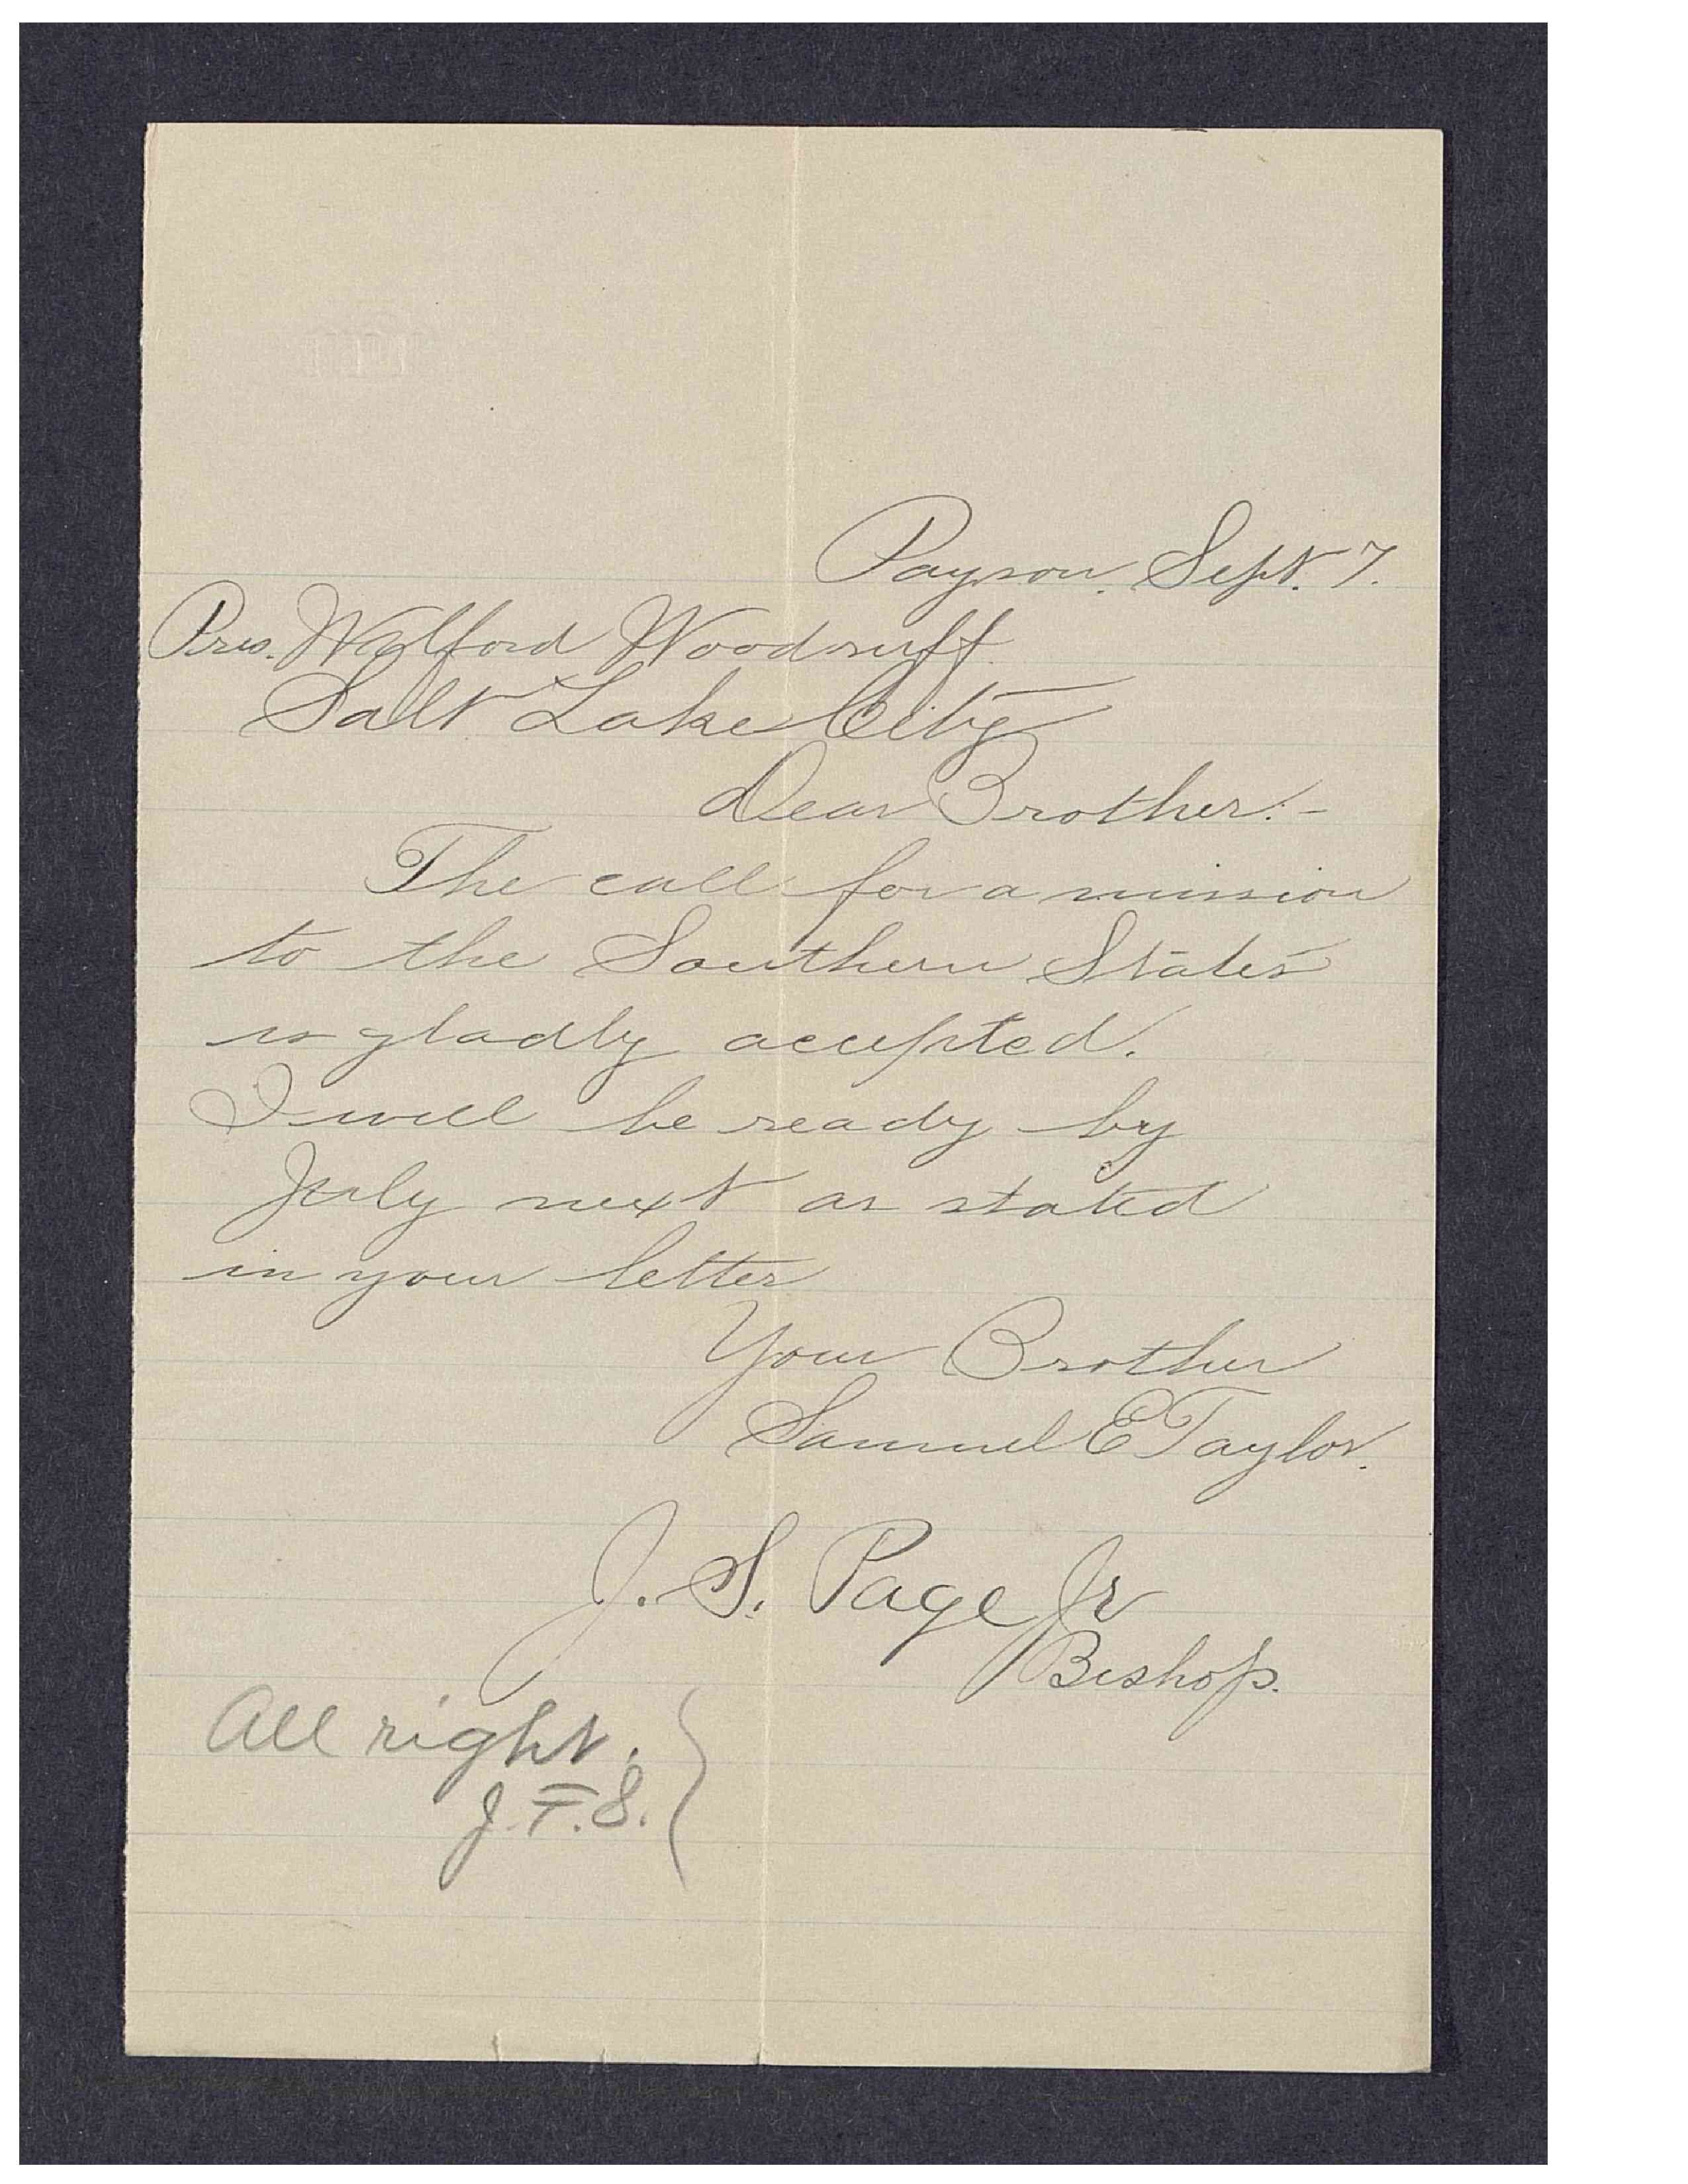 Payson. Sept. 7.
Pres. Wilford Woodruff.
Salt Lake City
Dear Brother:-
The call for a mission
to the Southern States
is gladly accepted.
I will be ready by
July next as stated
in your letter
Your Brother
Samuel E Taylor.
J. S. Page Jr
Bishop.
All right.
J. F. S.